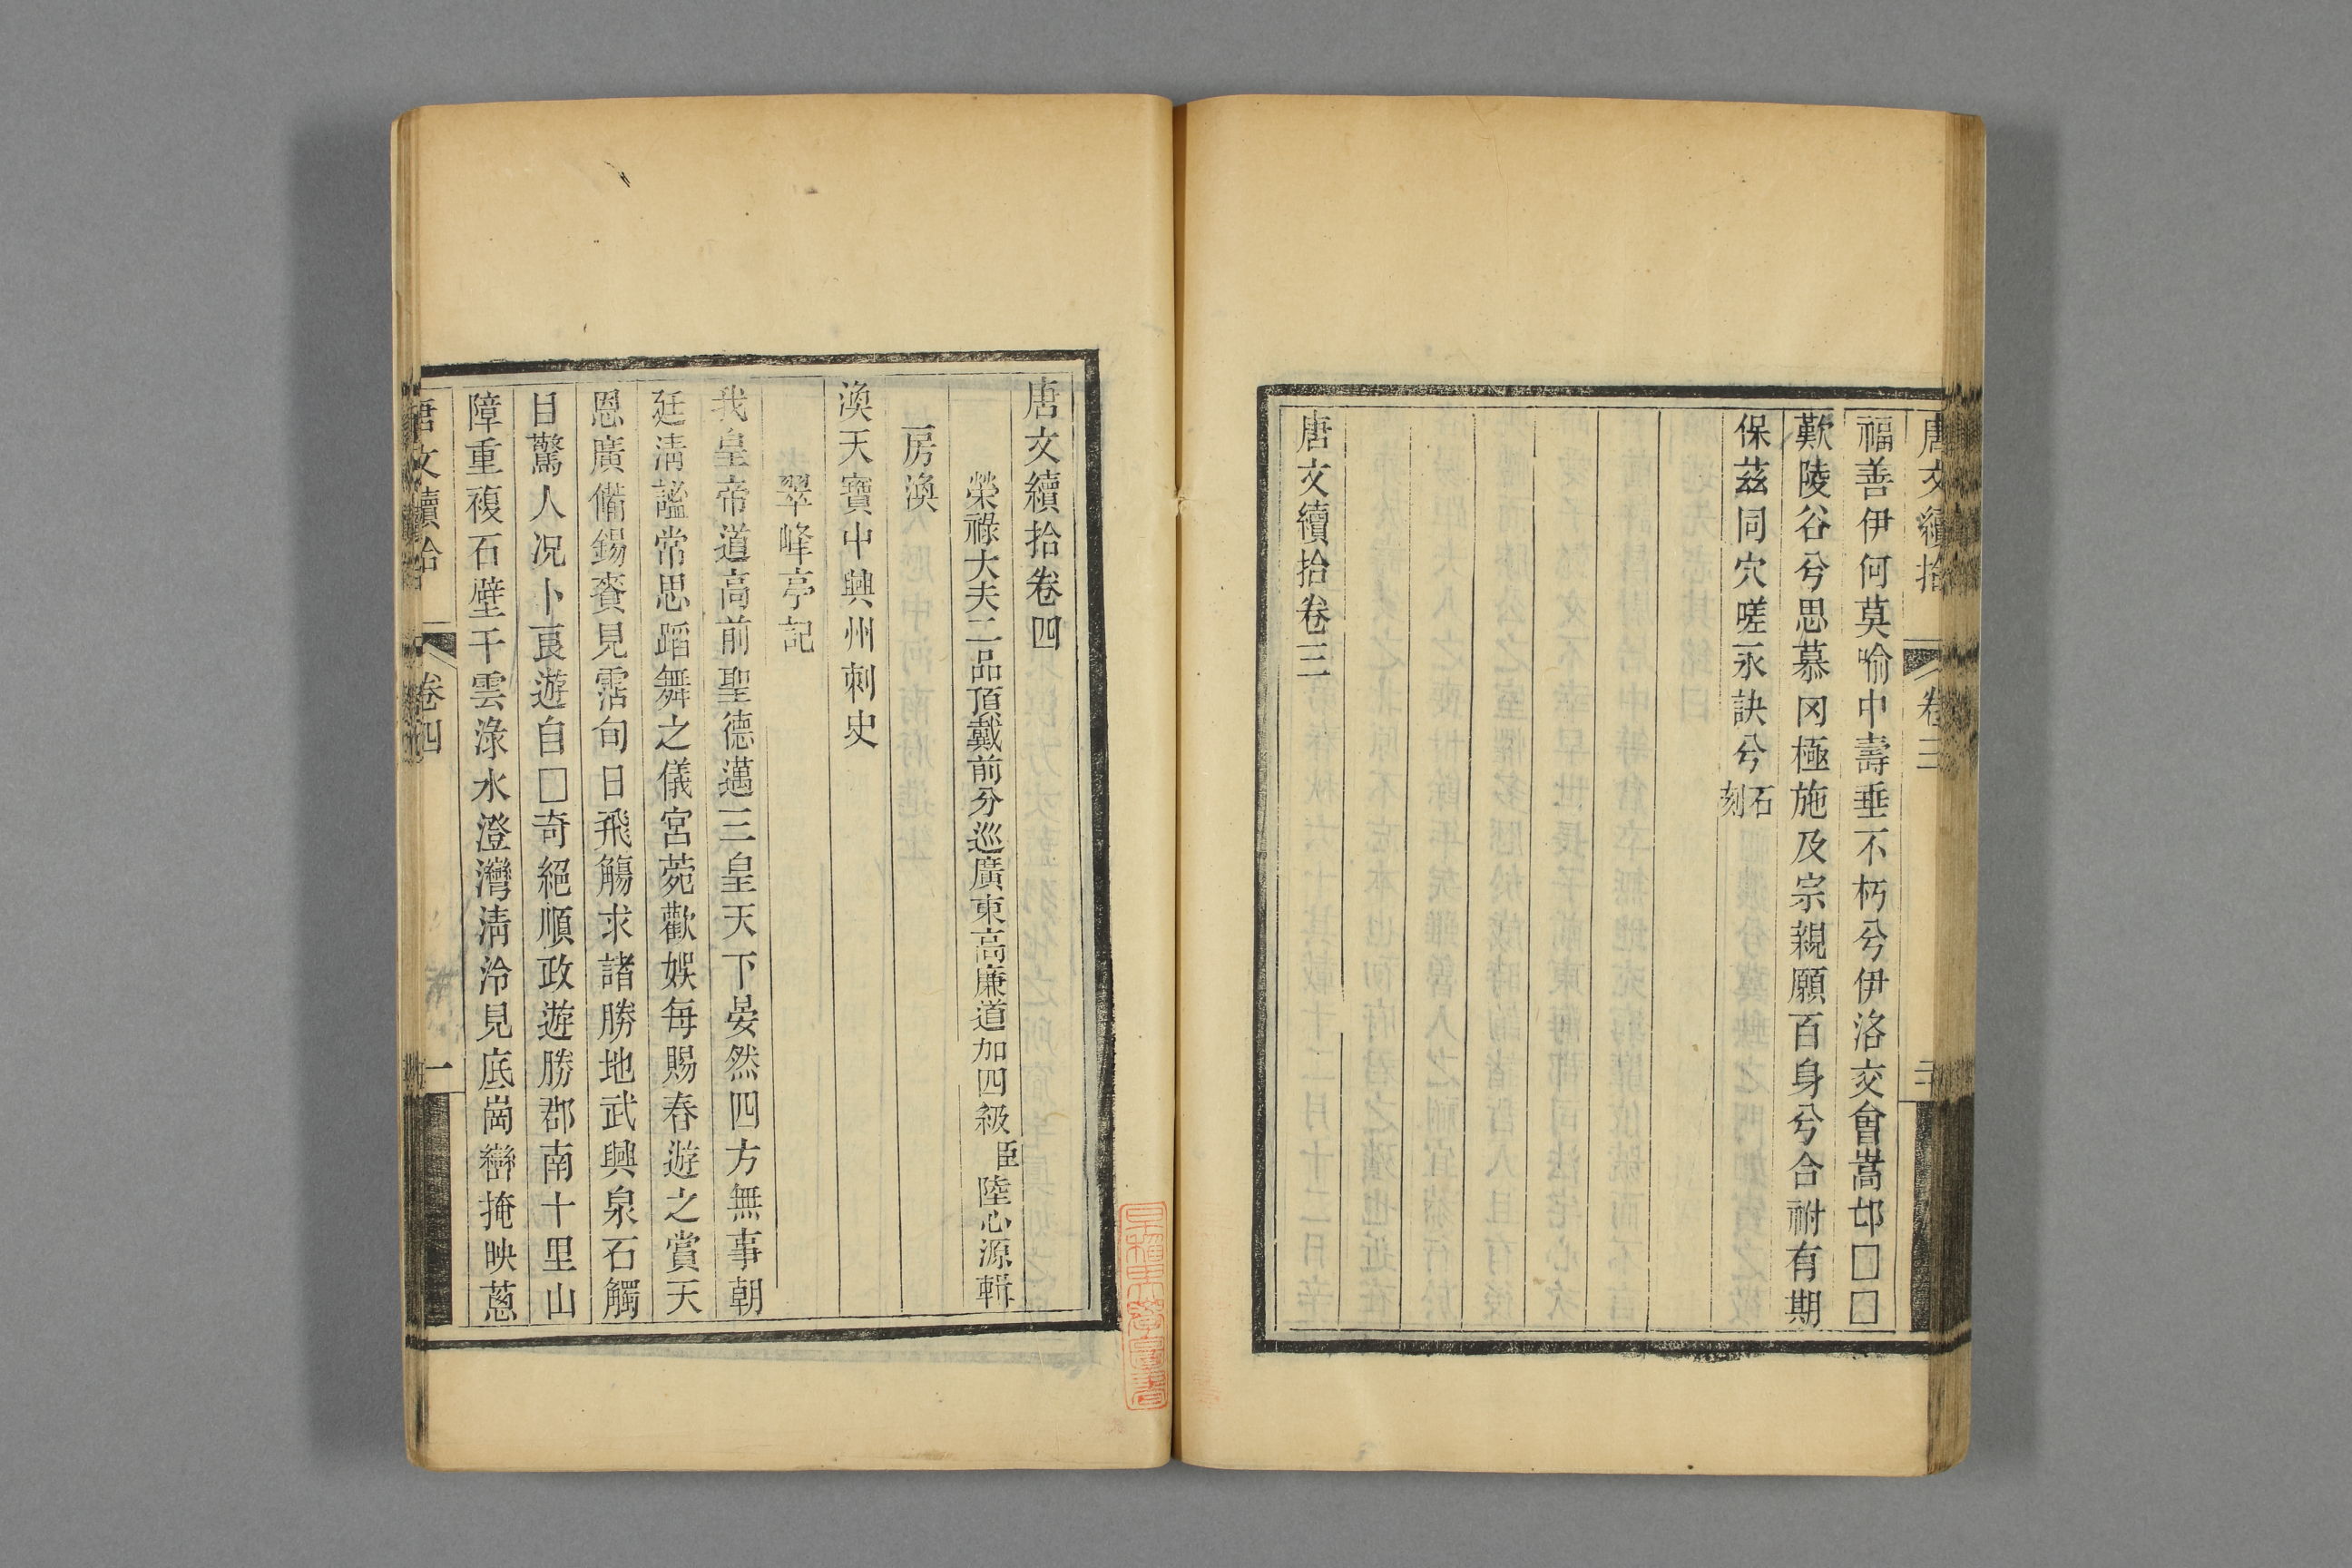 唐文續拾
卷三
福善伊何莫喻中壽垂不朽兮伊洛交會嵩邙□□
歎陵谷兮思慕冈極施及宗親願百身兮合祔有期
保茲同穴嗟永訣兮石刻
唐文續拾卷三
唐文續拾卷四
榮祿大夫二品頂戴前分巡廣東高廉道加四級臣陸心源輯
房渙
渙天寶中興州刺史
翠峰亭記
我皇帝道高前聖德邁三皇天下晏然四方無事朝
廷淸謐常思蹈舞之儀宮菀歡娛每賜春遊之賞天
恩廣備錫賚見霑旬日飛觴求諸勝地武興泉石觸
目驚人况卜良遊自□奇絕順政遊勝郡南十里山
障重複石壁干雲淥水澄灣淸泠見底崗巒掩映蔥
唐文續拾
卷四
一